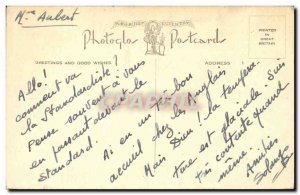 Mme Aubert
PUBLISHERS VALENTINE'S
Photoglos Postcard
PRINTED IN GREAT BRITAIN
GREETINGS AND GOOD WISHES
Allo!
comment va
la Standardiste?
Pense souvent à vous
en passant devant le
standard.
Ai eu un très bon
accueil chez les Anglais
Mais Dieu! la température
Fare est glaciale. Suis
très contente quand
même.
Amitiés